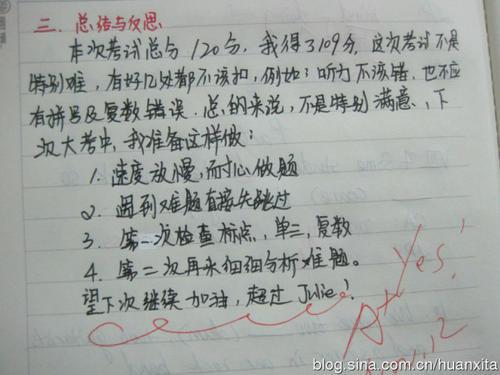 三. 总结与反思
本次考试总分120分,我得了109分,这次考试不是
特别难,有好几处都不该扣,例如:听力不该错,也不应
有拼写及复数错误.总的来说,不是特别满意、下
次大考中,我准备这样做:
1. 速度放慢,耐心做题
2. 遇到难题直接先跳过
3. 第一次检查标点,单三,复数
4. 第二次再来细细分析难题。
望下次继续加油,超过Julie!
Yes!
A+
blog.sina.com.cn/huanxita